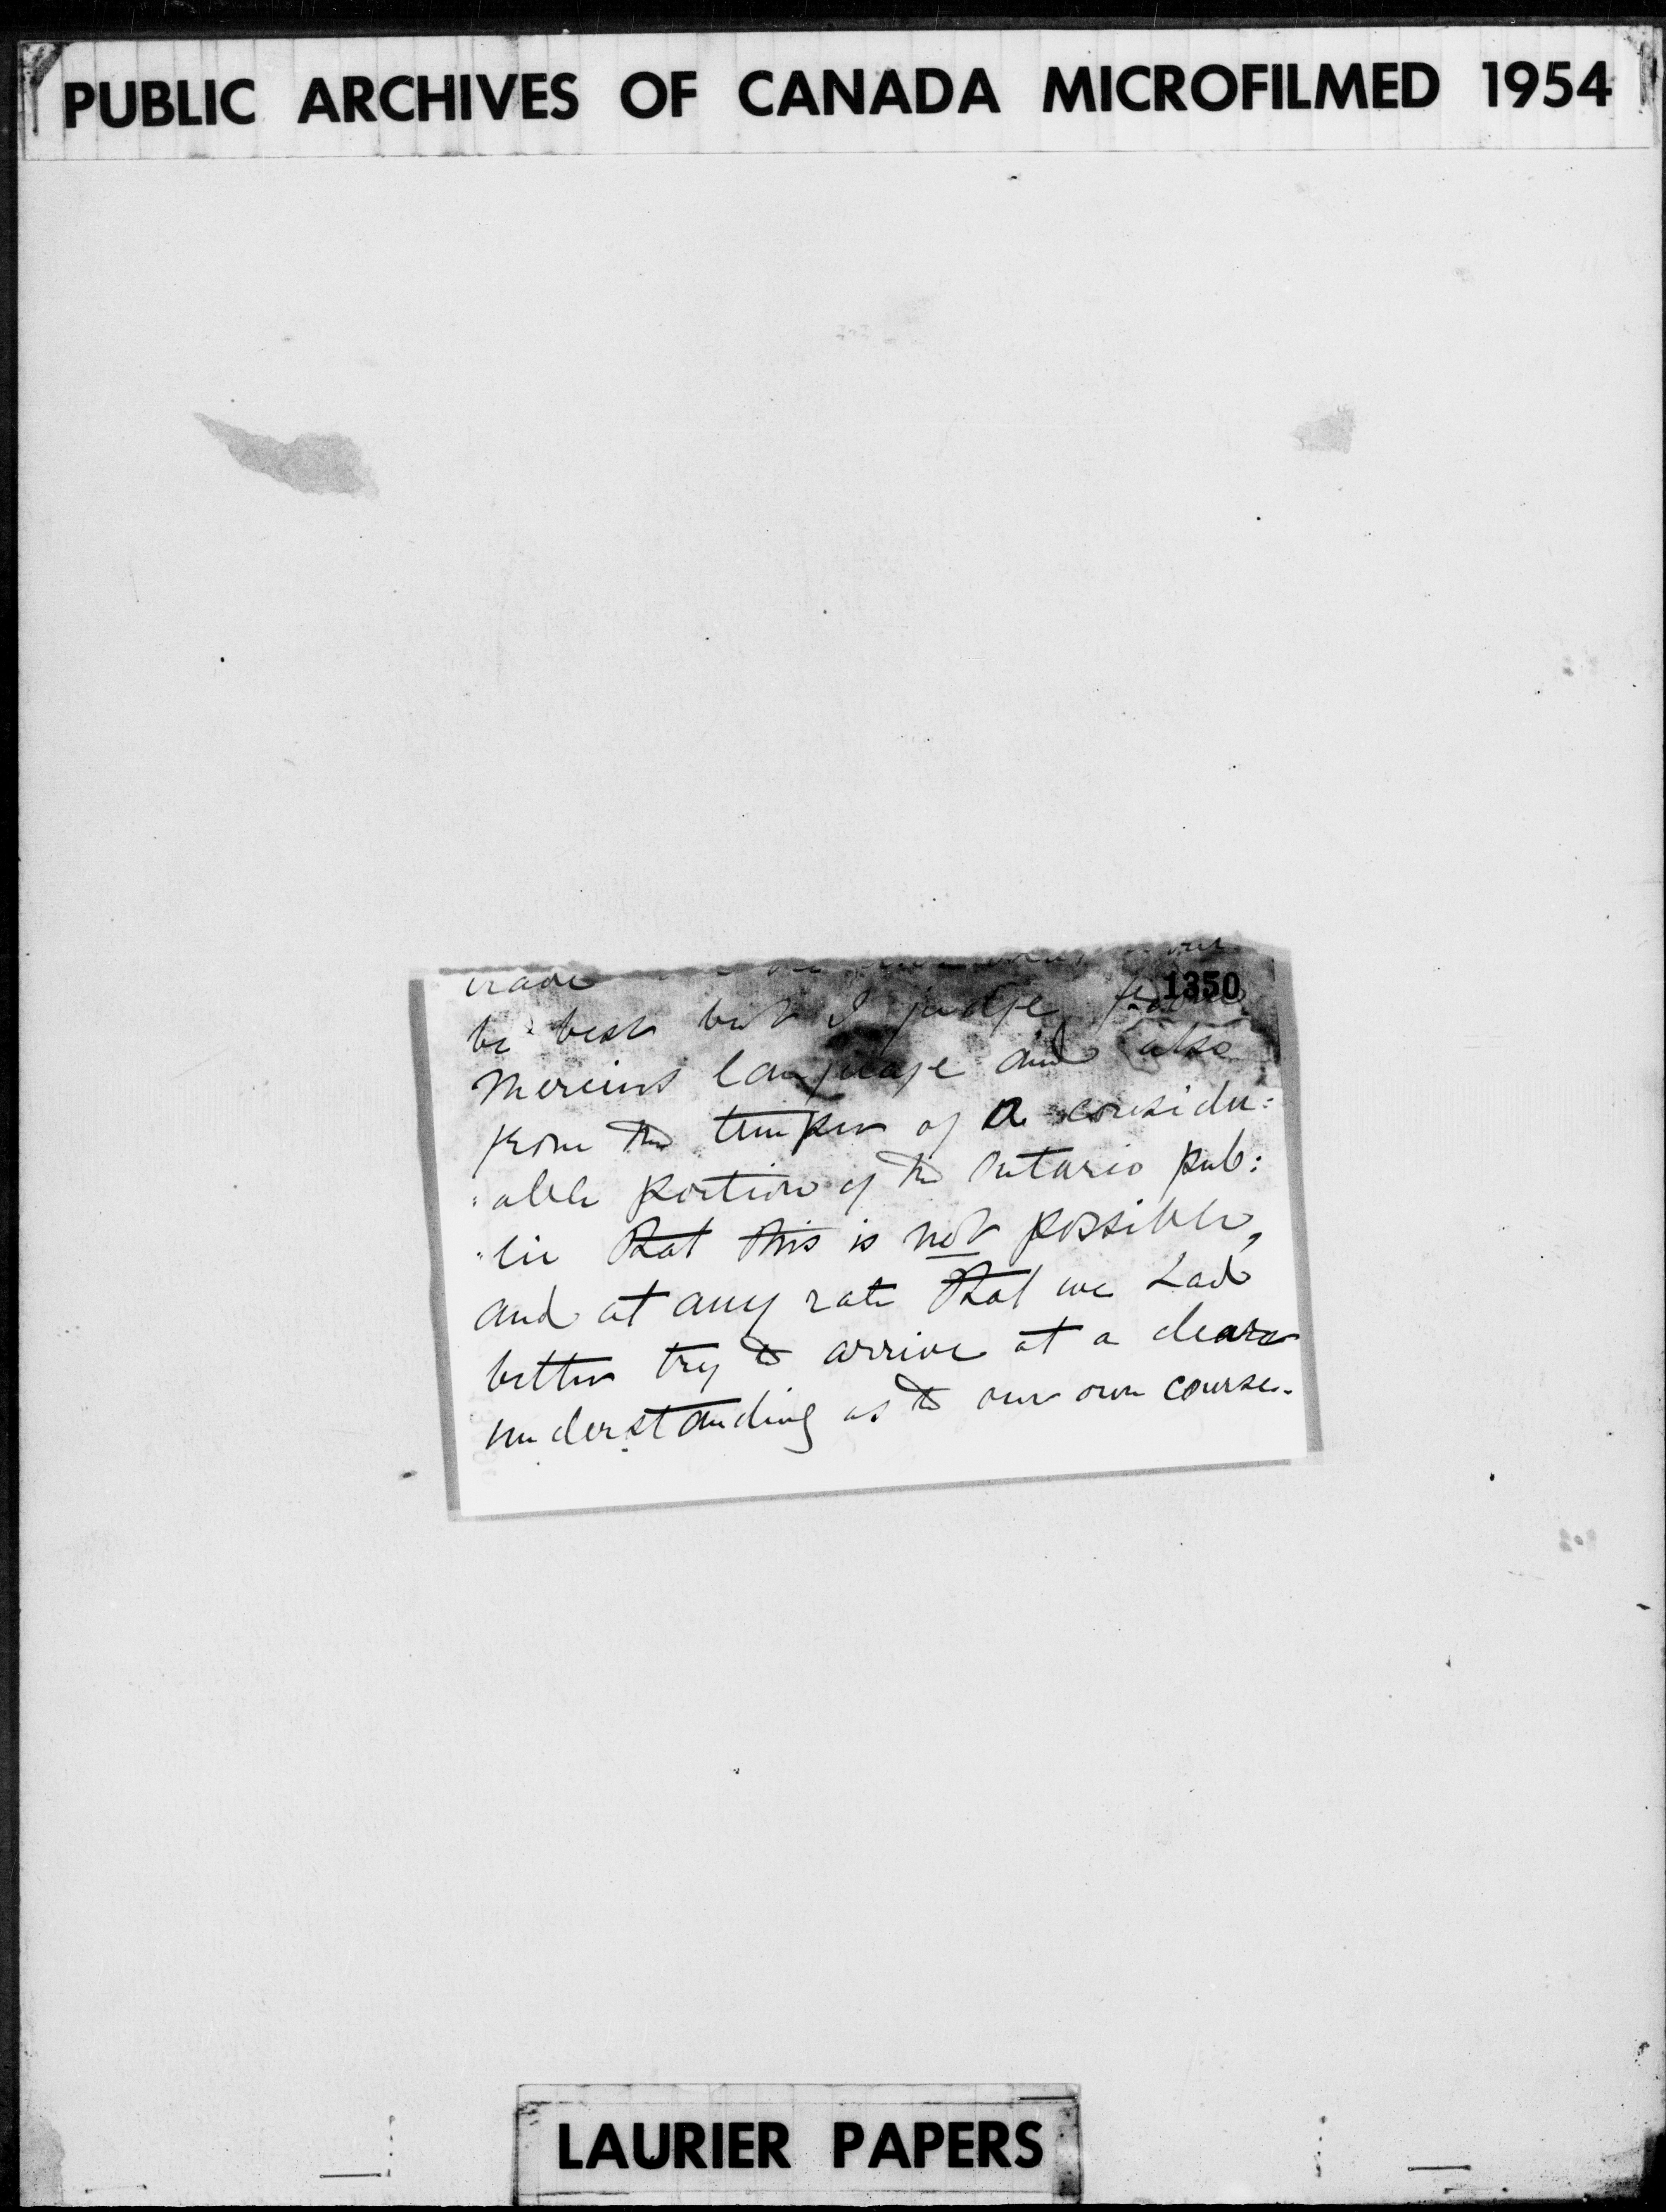 PUBLIC ARCHIVES OF CANADA MICROFILMED 1954
1350
be best but I judge from
Merciers language and also
from the temper of a consider:
:able portion of the Ontario pub:
:lic that this is not possible,
and at any rate that we had
better try to arrive at a clear
understanding as to our own course.
LAURIER PAPERS